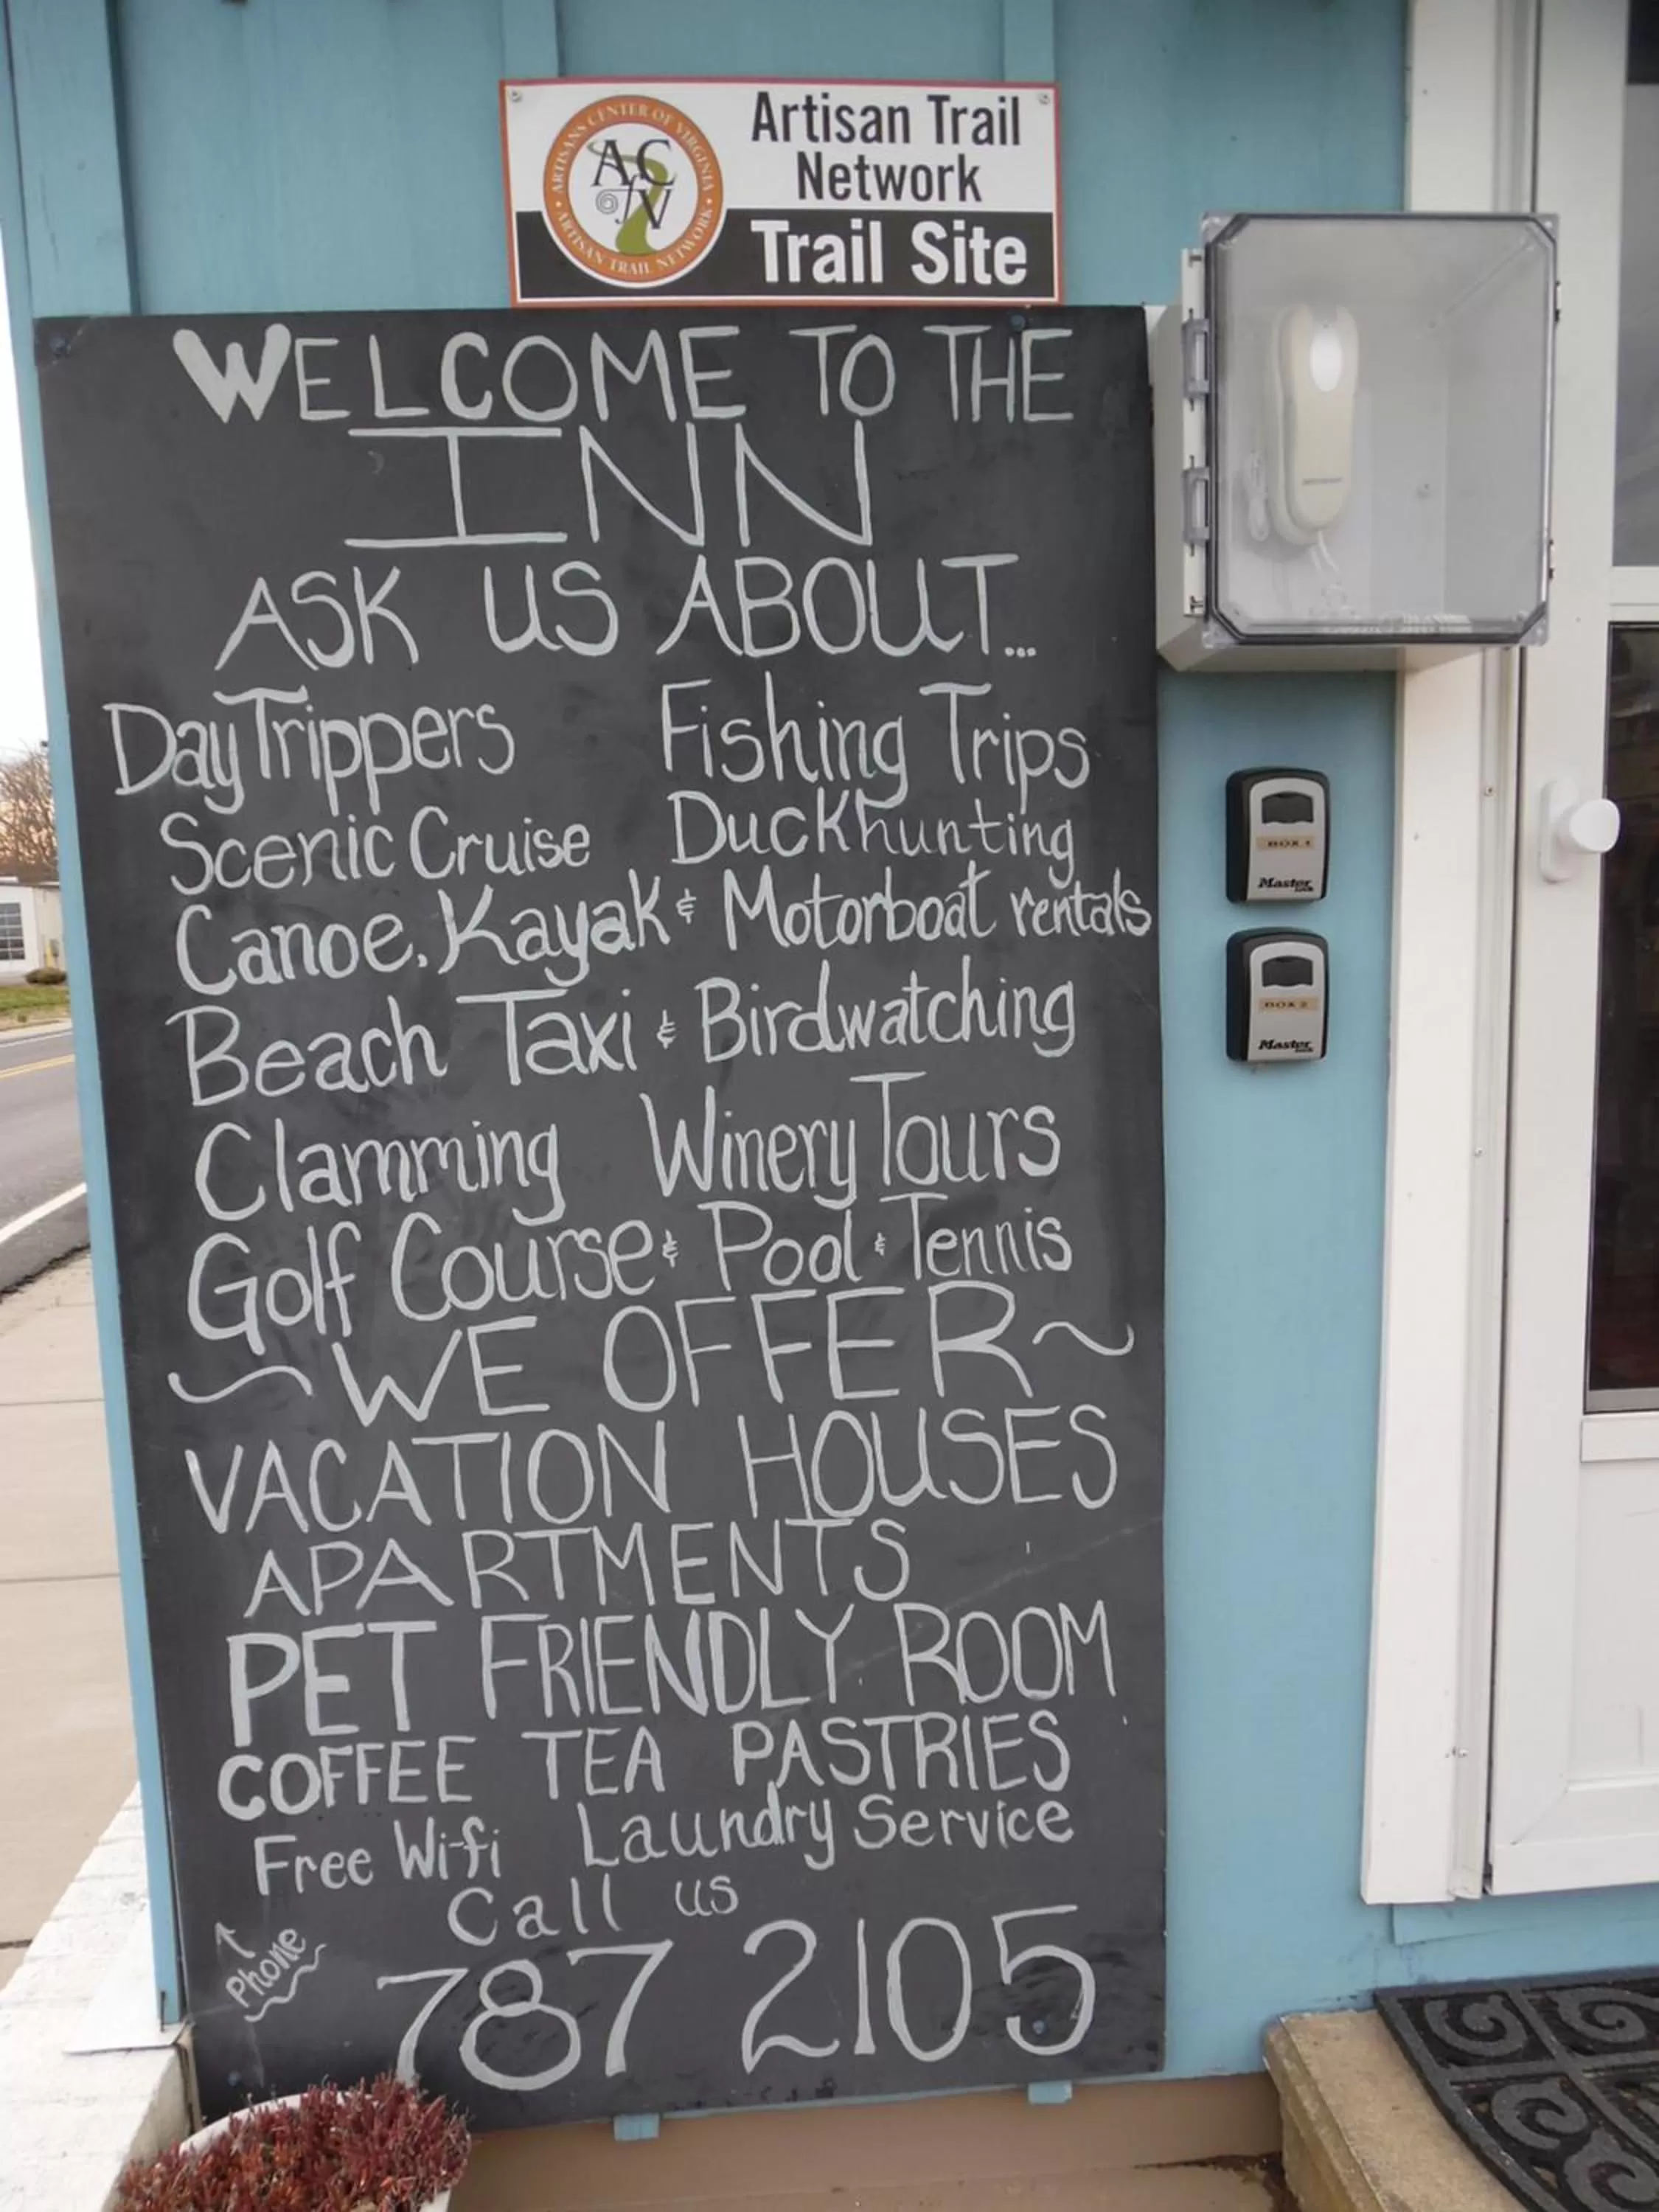 ARTISANS CENTER OF VIRGINIA
ACofV
ARTISAN TRAIL NETWORK
Artisan Trail
Network
Trail Site
WELCOME TO THE
INN
ASK US ABOUT...
Day Trippers Fishing Trips
Scenic Cruise Duckhunting
Canoe, Kayak & Motorboat rentals
Beach Taxi & Birdwatching
Clamming Winery Tours
Golf Course & Pool & Tennis
~WE OFFER~
VACATION HOUSES
APARTMENTS
PET FRIENDLY ROOM
COFFEE TEA PASTRIES
Free Wi-fi Laundry Service
Call us
↑ Phone
787 2105
BOX 1
Master Lock
BOX 2
Master Lock